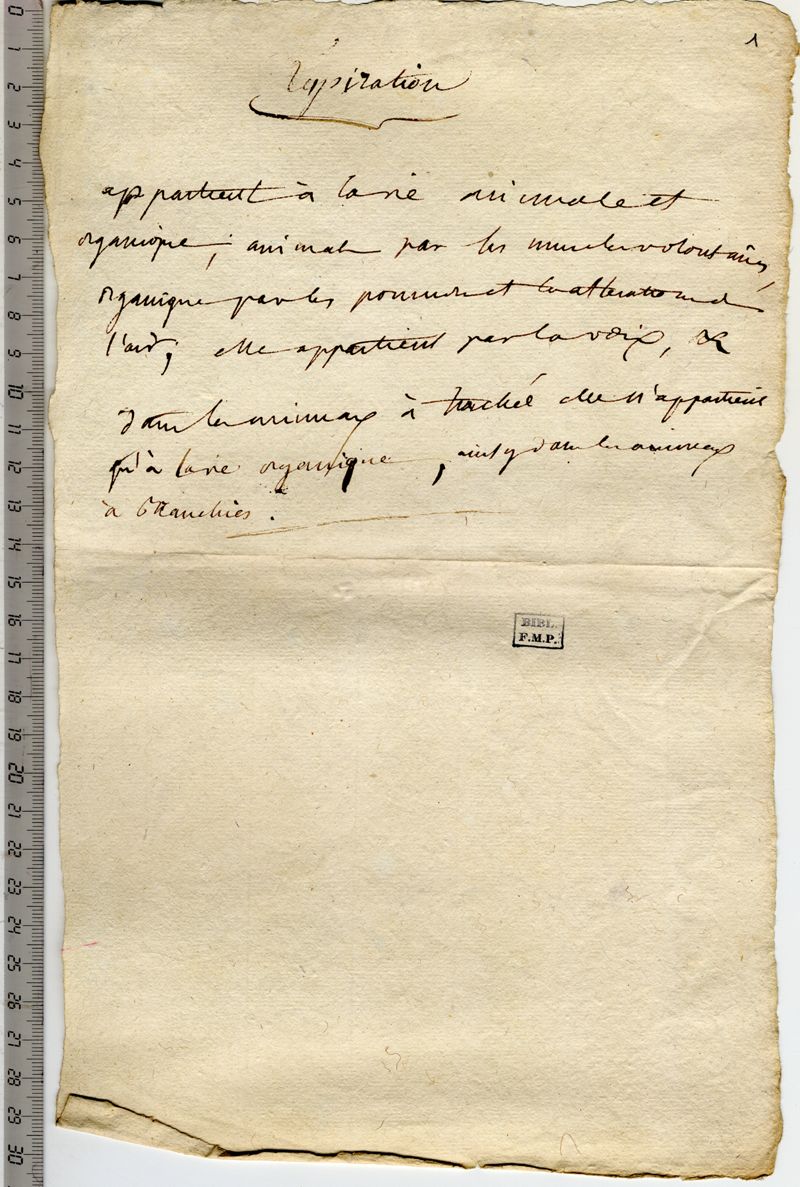 1
respiration
appartient à la vie animale et
organique; animale par les muscles volontaires,
organique par les poumons et les alterations de
l'air; elle appartient par la voix, &
dans les animaux à trachée elle n'appartient
qu'à la vie organique, ainsy dans les animaux
à branchies.
BIBL.
F.M.P.
0 1 2 3 4 5 6 7 8 9 10 11 12 13 14 15 16 17 18 19 20 21 22 23 24 25 26 27 28 29 30